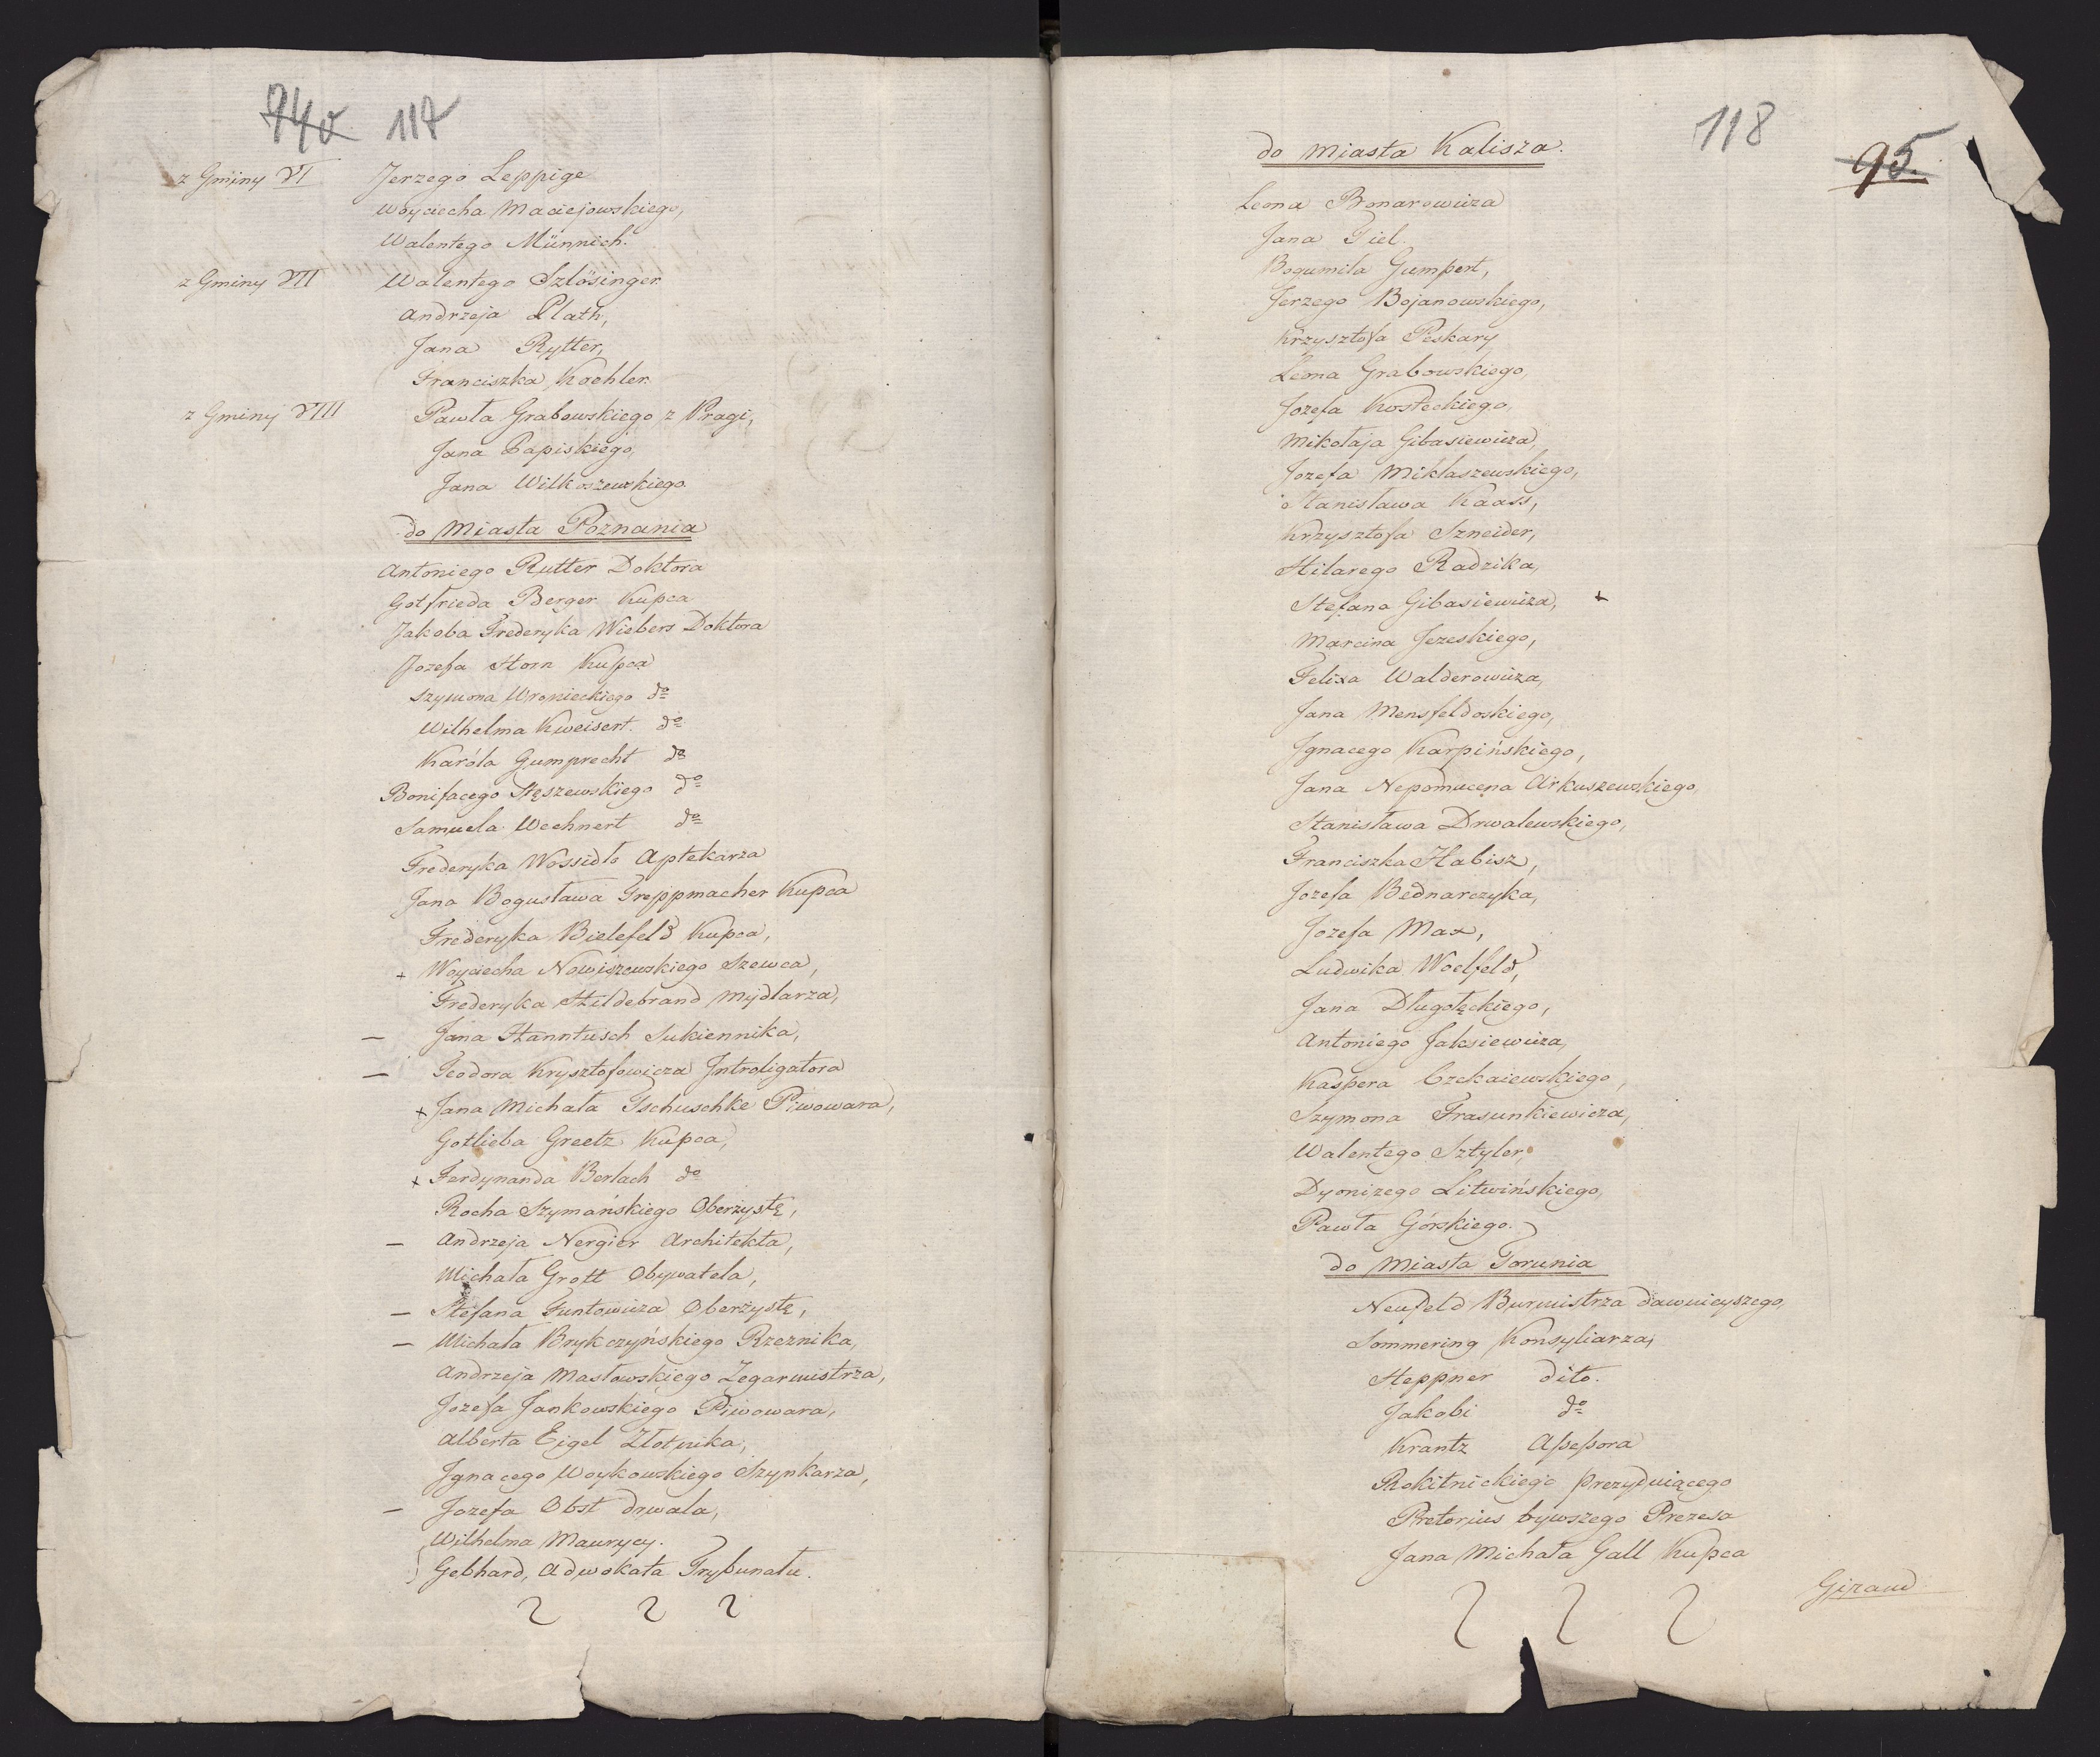 74v 117
z Gminy VI Jerzego Leppige
Woyciecha Maciejowskiego,
Walentego Münnich.
z Gminy VII Walentego Szlösinger
Andrzeja Plath,
Jana Rytter,
Franciszka Koehler.
z Gminy VIII Pawła Grabowskiego z Pragi,
Jana Papiskiego,
Jana Wilkoszewskiego.
do Miasta Poznania
Antoniego Rutter Doktora
Gotfrieda Berger Kupca
Jakoba Frederyka Wiebers Doktora
Jozefa Horn Kupca
Szymona Wronieckiego do
Wilhelma Kweisert. do
Karóla Gumprecht do
Bonifacego Stęszewskiego do
Samuela Wechnert do
Frederyka Wossidło Aptekarza
Jana Bogusława Treppmacher Kupca
Frederyka Bielefeld Kupca,
+ Woyciecha Nowiszewskiego Szewca,
Frederyka Hildebrand Mydlarza,
— Jana Hanntusch Sukiennika,
— Teodora Krysztofowicza Jntroligatora
+ Jana Michała Tschuschke Piwowara,
Gotlieba Greetz Kupca,
+ Ferdynanda Berlach do
Rocha Szymańskiego Oberzystę,
— Andrzeja Nergier Architekta,
Michała Grott Obywatela,
— Stefana Funtowicza Oberżystę,
— Michała Brykczyńskiego Rzeznika,
Andrzeja Masłowskiego Zegarmistrza,
Jozefa Jankowskiego Piwowara,
Alberta Eigel Złotnika,
Jgnacego Woykowskiego Szynkarza,
— Jozefa Obst drwala,
Wilhelma Maurycy.
Gebhard, Adwokata Trybunatu.
118
95.
do Miasta Kalisza.
Leona Bonarowicza
Jana Tiel.
Bogumiła Gumpert,
Jerzego Bojanowskiego,
Krzysztofa Peskary
Leona Grabowskiego,
Jozefa Kosteckiego,
Mikołaja Gibasiewicza,
Jozefa Miklaszewskiego,
Stanisława Kaass,
Krzysztofa Szneider,
Hilarego Radzika,
Stefana Gibasiewicza, +
Marcina Jezeskiego,
Felixa Walderowicza,
Jana Mensfeldoskiego,
Jgnacego Karpińskiego,
Jana Nepomucena Arkuszewskiego,
Stanisława Drwalewskiego,
Franciszka Habisz,
Jozefa Bednarczyka,
Jozefa Max,
Ludwika Woelfeld,
Jana Długołęckiego,
Antoniego Jaksiewicza,
Kaspera Czekaiewskiego,
Szymona Frasunkiewicza,
Walentego Sztyler,
Dyonizego Litwińskiego,
Pawła Górskiego.
do Miasta Torunia
Neufeld Burmistrza dawnieyszego,
Sommering Konsyliarza,
Heppner dito.
Jakobi do
Krantz Assessora
Rokitnickiego Prezyduiącego
Pretorius bywszego Prezesa
Jana Michała Gall Kupca